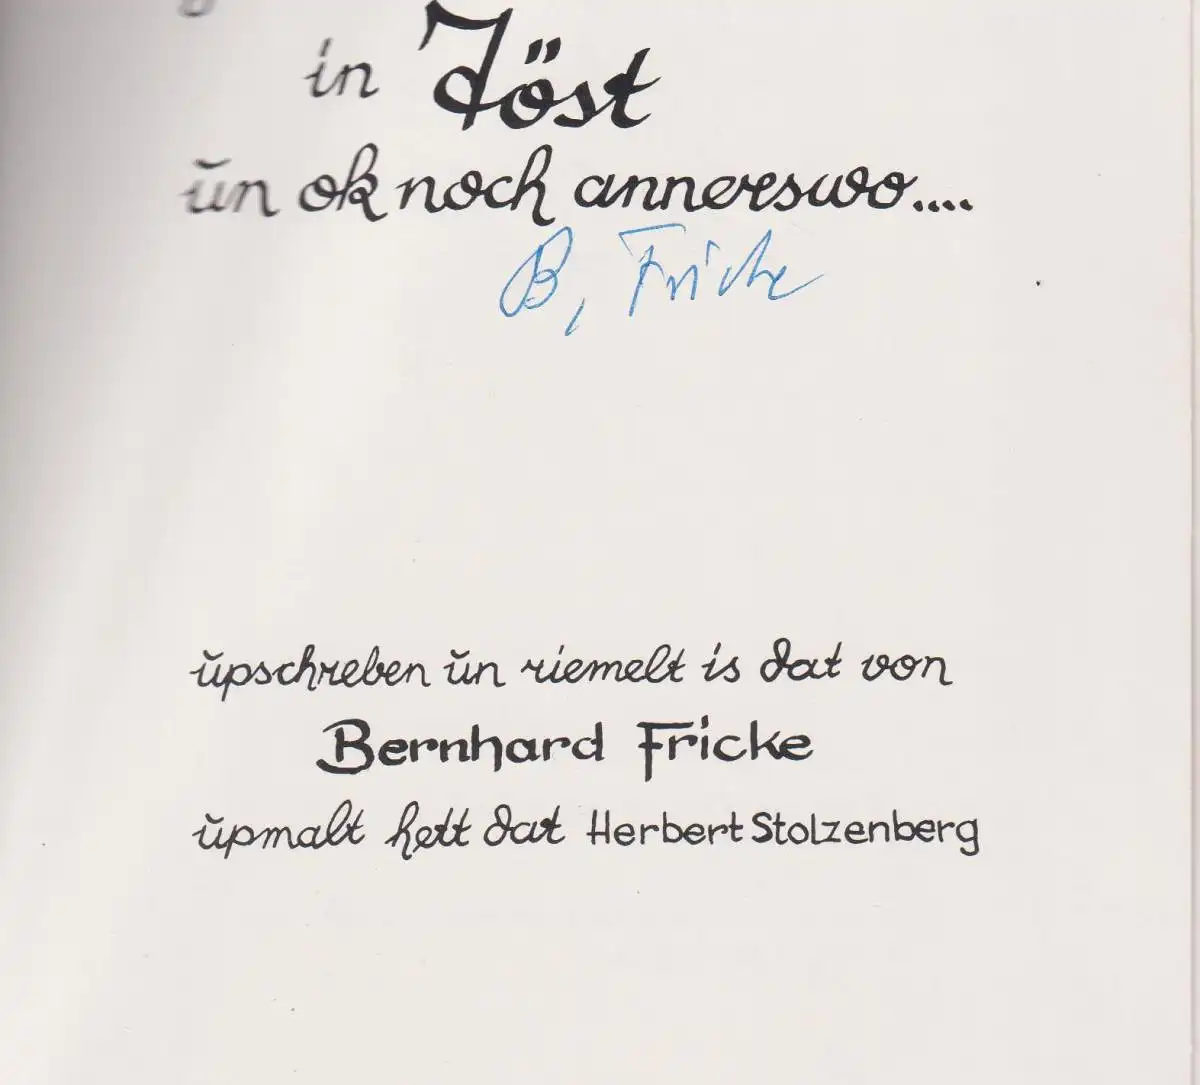 in Jöst
ŭn ok noch annerswo....
B, Fricke
ŭpschreben ŭn riemelt is dat von
Bernhard Fricke
ŭpmalt hett dat Herbert Stolzenberg